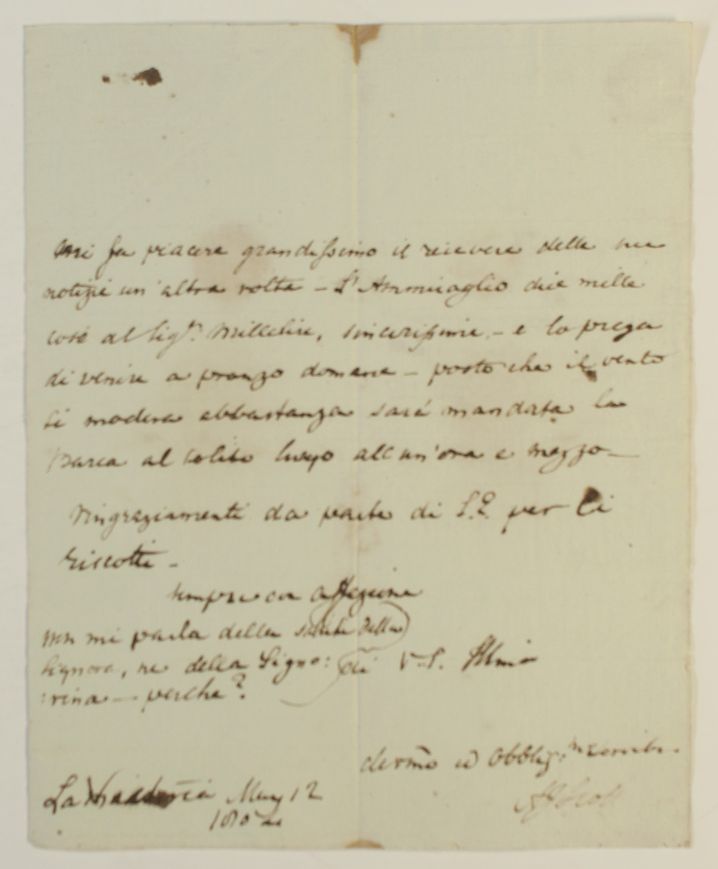 mi fa piacere grandissimo il ricevere delle sue
notizie un'altra volta – L'Ammiraglio dice mille
cose al Sigr. Millelire, sincerissime – e lo prega
di venire a pranzo domane – posto che il vento
si modera abbastanza sará mandata la
barca al solito luogo all'un'ora e mezzo –
ringraziamenti da parte di per li
biscotti –
sempre con affezione
non mi parla della salute della
Signora, ne della Signo:
rina — perche?
di V.S. Illmia
devmo ed Obbligmo
La May 12
A Scott